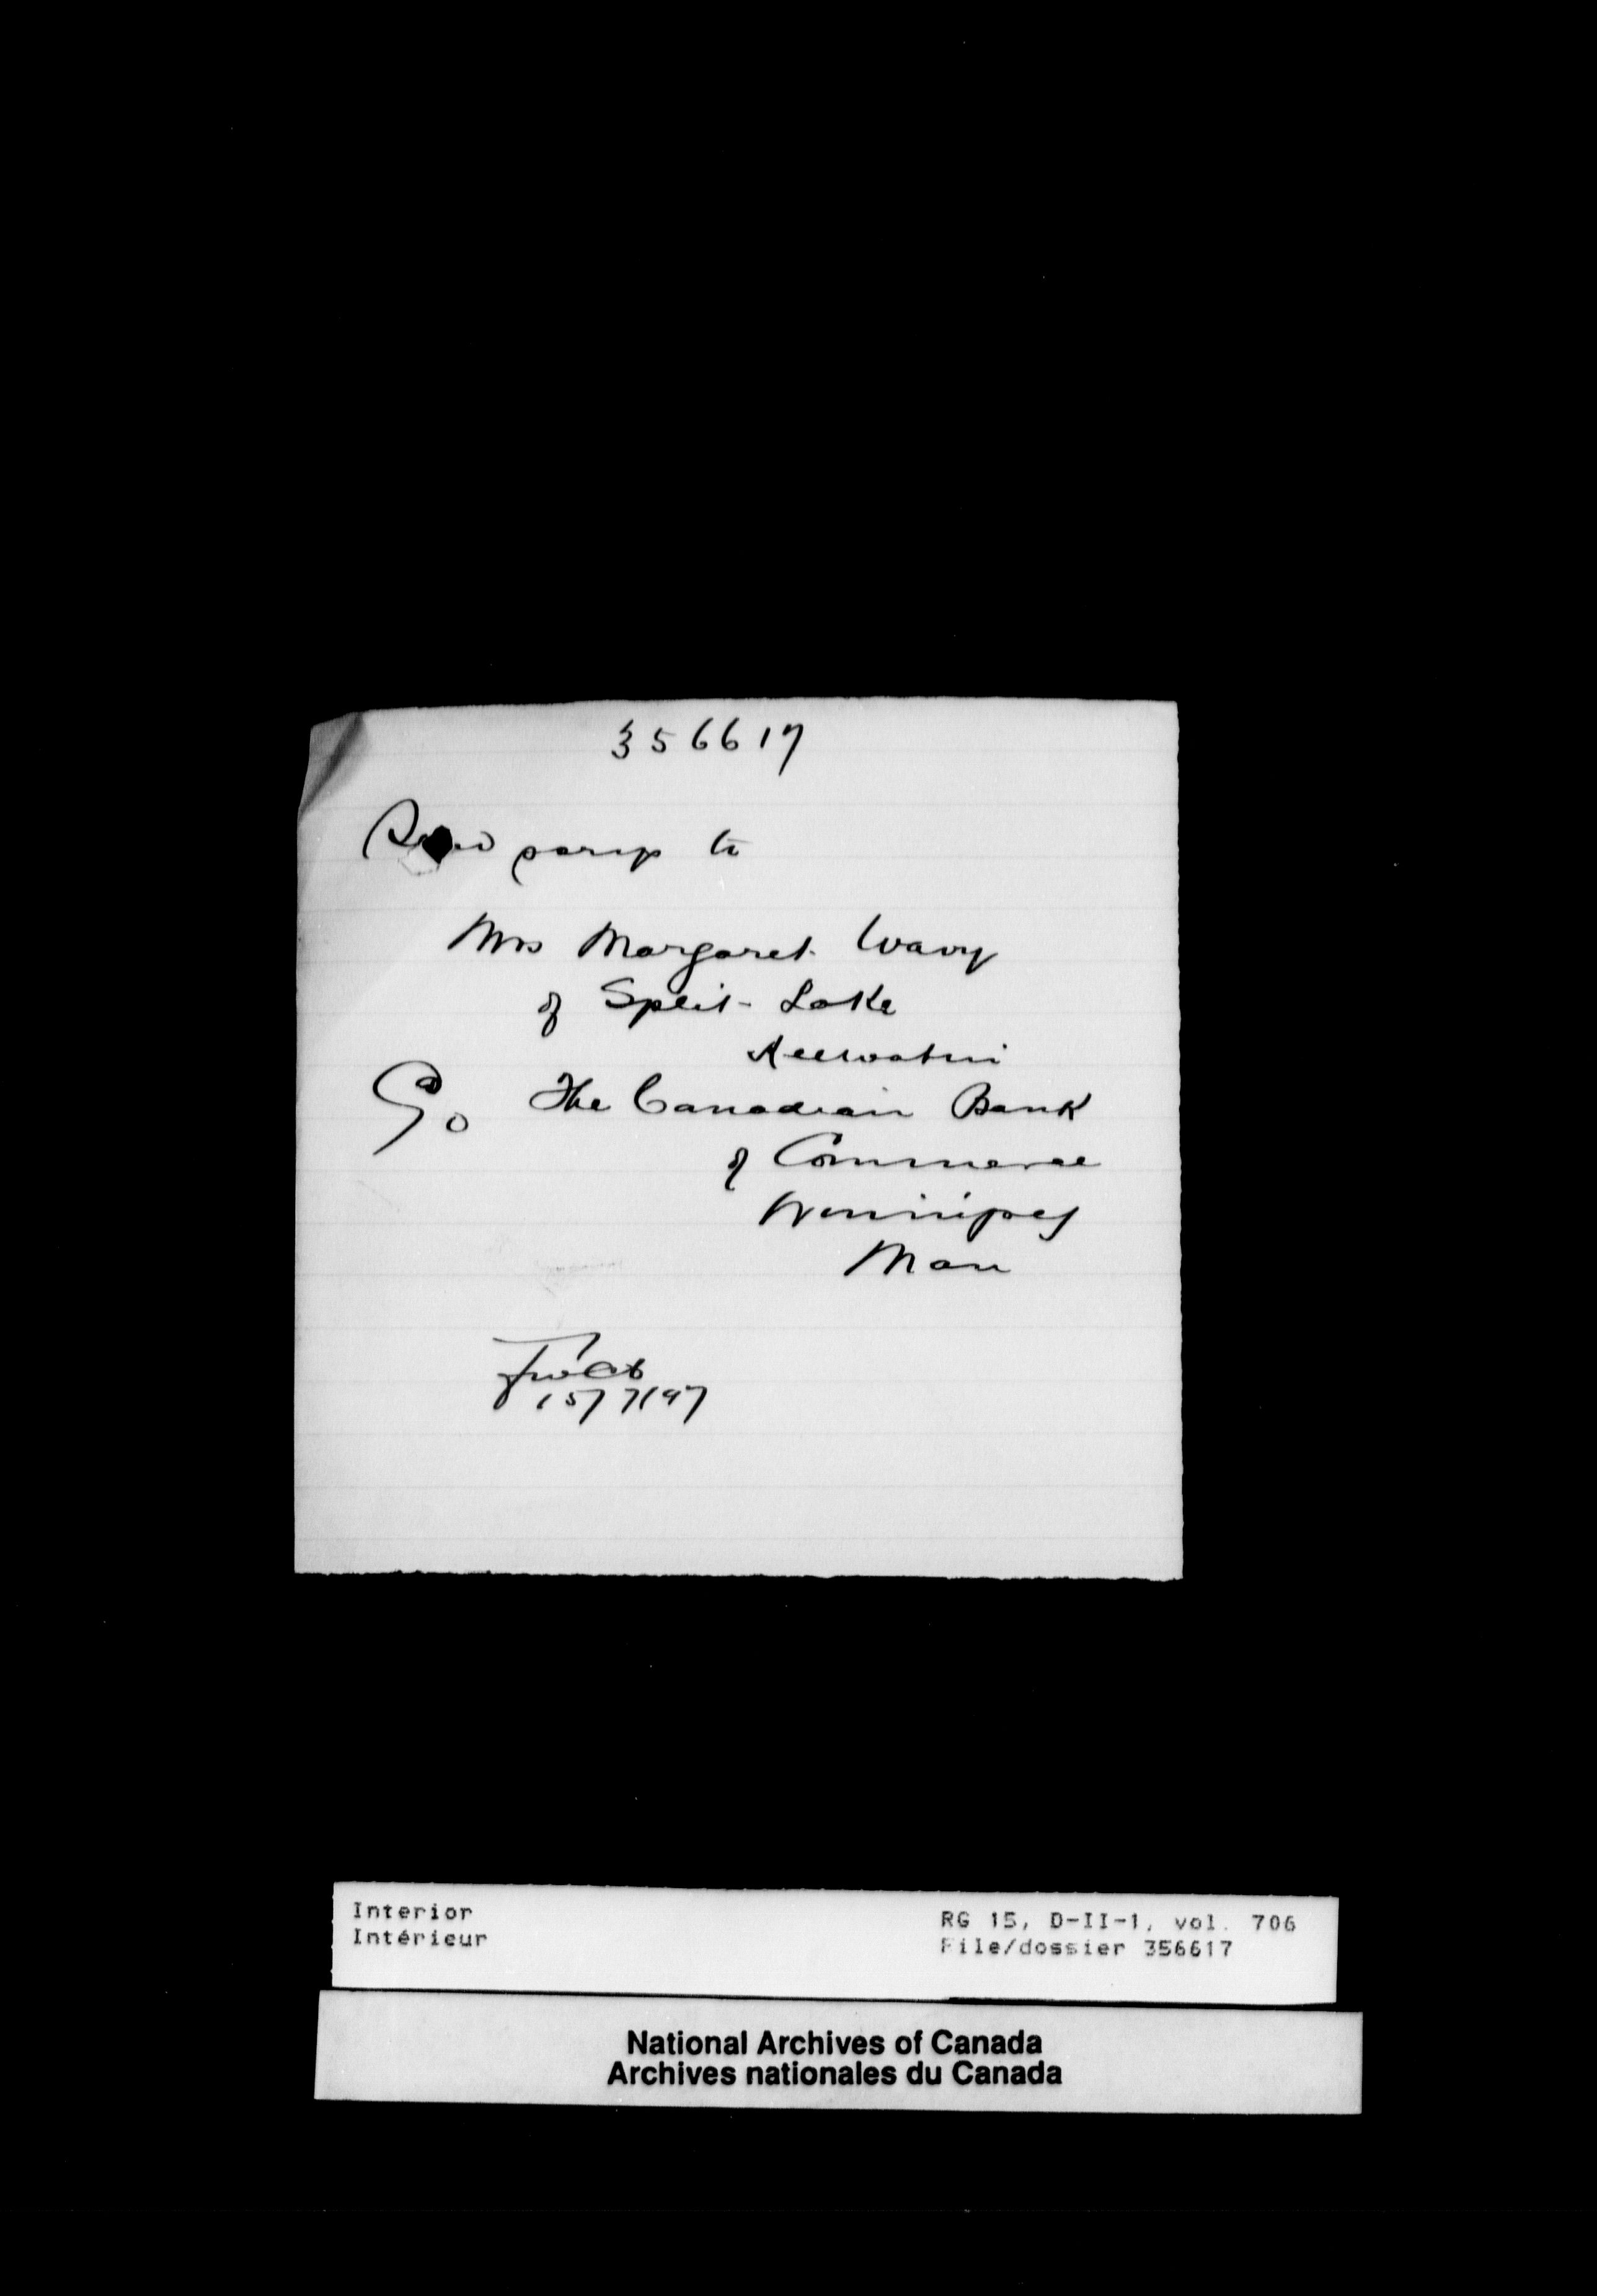 356617
Send scrip to
Mrs Margaret Wavy
of Split Lake
Keewatin
C/o The Canadian Bank
of Commerce
Winnipeg
Man
15/7/97
Interior
Intérieur
RG 15, D-II-1, vol. 706
File/dossier 356617
National Archives of Canada
Archives nationales du Canada